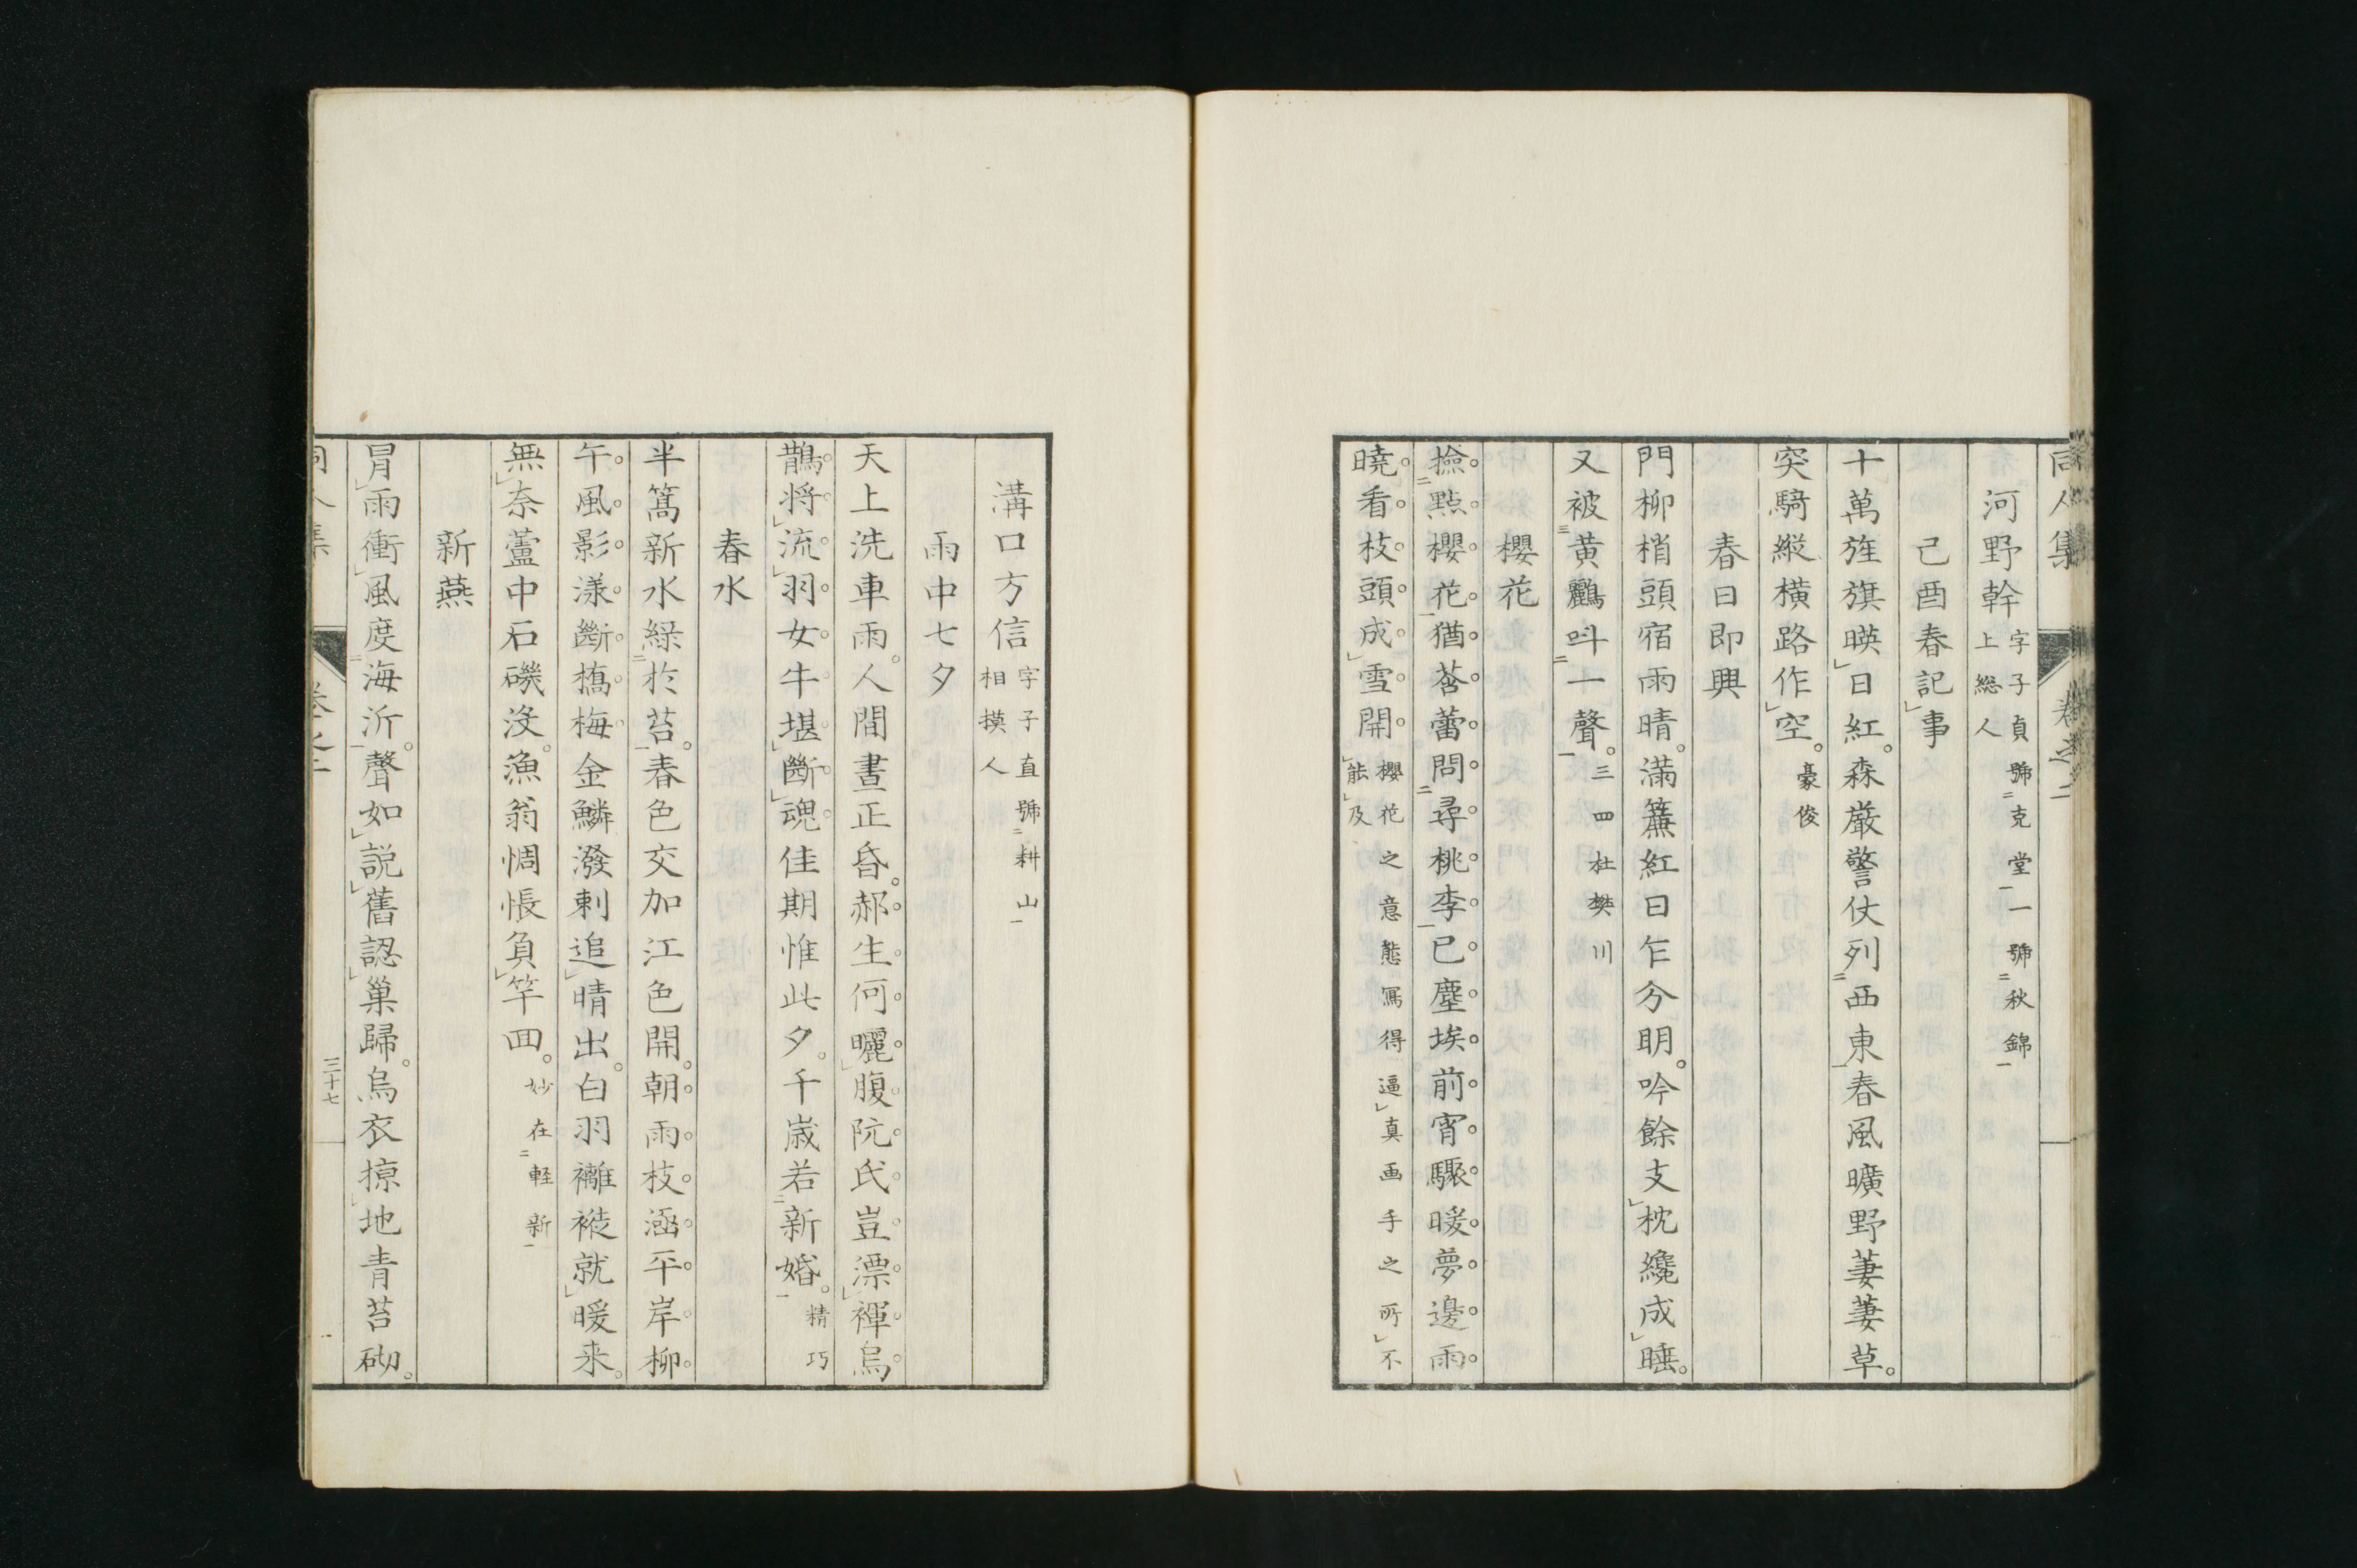 同人集 卷之二
河野幹 字子貞號克堂一號秋錦上総人
己酉春記事
十萬旌旗暎日紅。森嚴警仗列西東春風曠野萋萋草。
突騎縱橫路作空。豪俊
春日即興
門柳梢頭宿雨晴。滿簾紅日乍分明。吟餘支枕纔成睡。
又被黃鸝呌一聲。三四杜樊川
櫻花
撿點櫻花猶荅蕾問尋桃李已塵埃前宵驟暖夢邊雨
曉看枝頭成雪開 櫻花之意態寫得逼真画手之所不能及
溝口方信 字子直號耕山相摸人
雨中七夕
天上洗車雨。人間晝正昏。郝生何曬腹阮氏豈漂褌烏
鵲将流羽女牛堪斷魂佳期惟此夕。千歳若新婚。精巧
春水
半篙新水綠於苔。春色交加江色開。朝雨枝涵平岸柳
午風影漾斷橋梅金鱗潑剌追晴出。白羽襹褷就暖来。
無奈蘆中石磯沒。漁翁惆悵負竿回。妙在軽新
新燕
冐雨衝風度海沂。聲如説舊認巢歸。烏衣掠地青苔砌。
同人集 卷之二 三十七